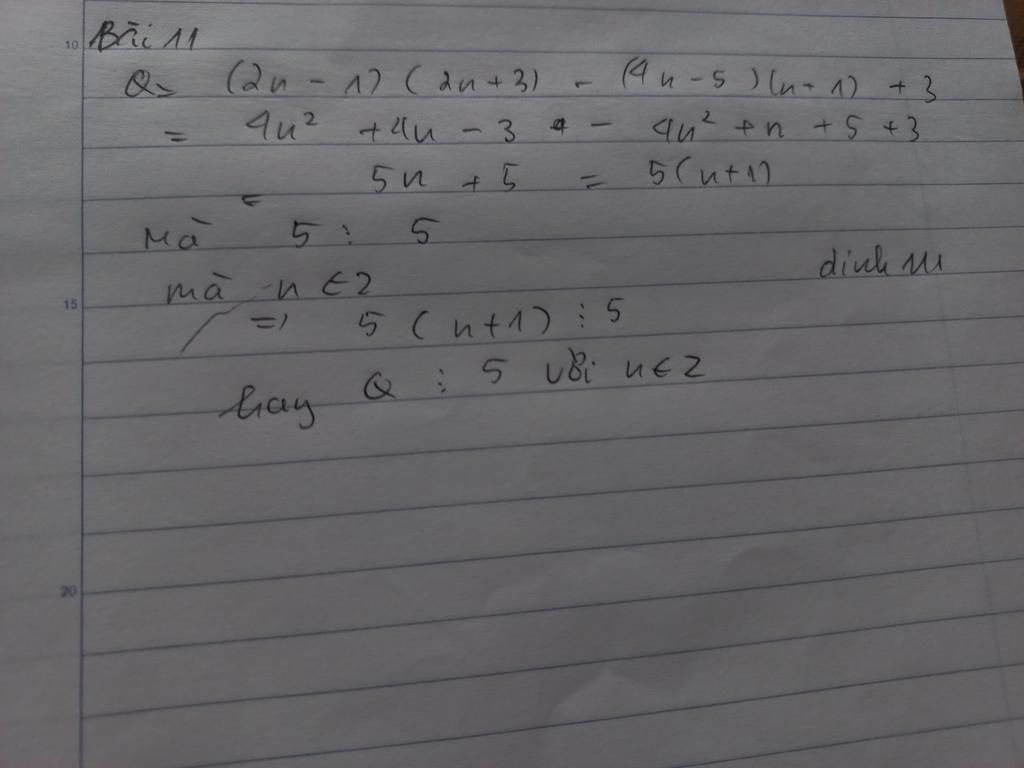 10 Bài 11
Q = (2n - 1)(2n+3) - (4n-5)(n+1) + 3
= 4n² + 4n - 3 - 4n² + n + 5 + 3
= 5n + 5 = 5(n+1)
Mà 5 ⋮ 5
mà n ∈ Z
15 => 5(n+1) ⋮ 5
hay Q ⋮ 5 với n ∈ Z
20